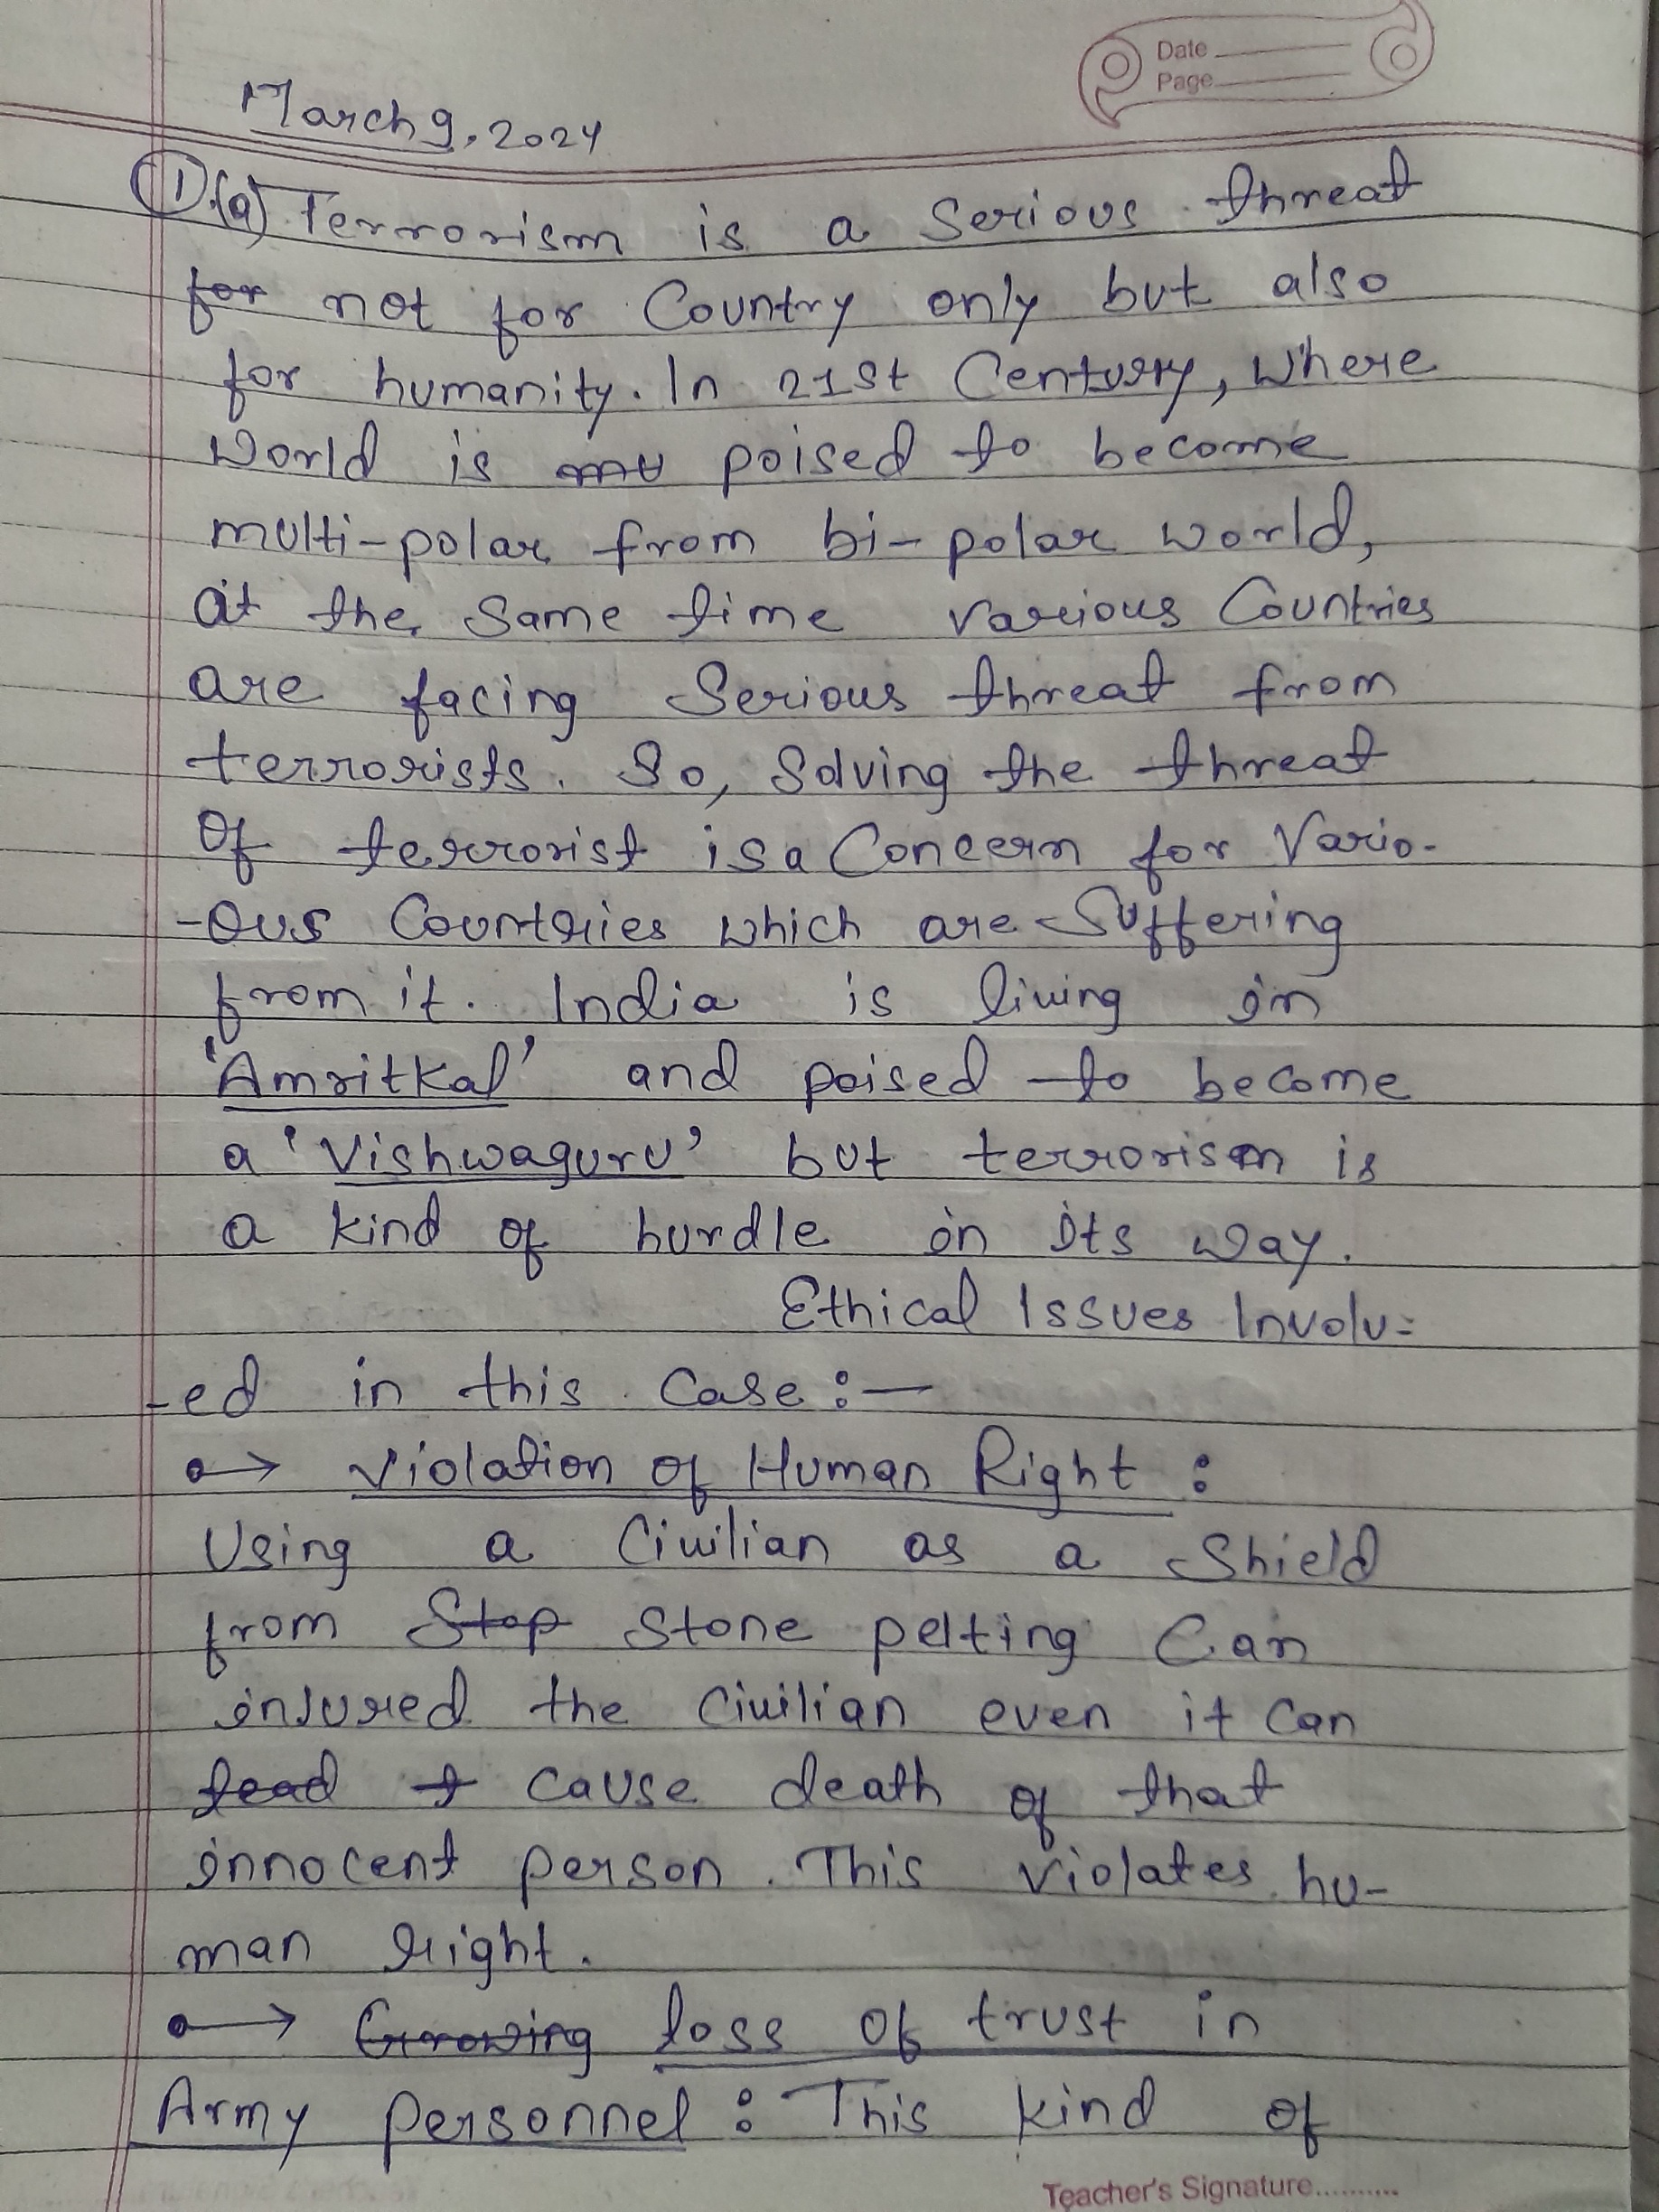 Date
Page
March 9, 2024
1.(a) Terrorism is a serious threat
for not for Country only but also
for humanity. In 21st Century, where
World is mu poised to become
multi-polar from bi-polar world,
at the same time various Countries
are facing Serious threat from
terrorists. So, Solving the threat
Of terrorist is a Concern for Vario-
-ous Countries which are Suffering
from it. India is living in
'Amritkal' and poised to become
a 'Vishwaguru' but terrorism is
a kind of hurdle in its way.
Ethical Issues Involv-
-ed in this Case :—
→ Violation of Human Right :
Using a Civilian as a Shield
from Stop Stone pelting Can
injured the Civilian even it Can
lead t cause death of that
innocent person. This violates hu-
man right.
→ Growing loss of trust in
Army personnel : This kind of
Teacher's Signature..........